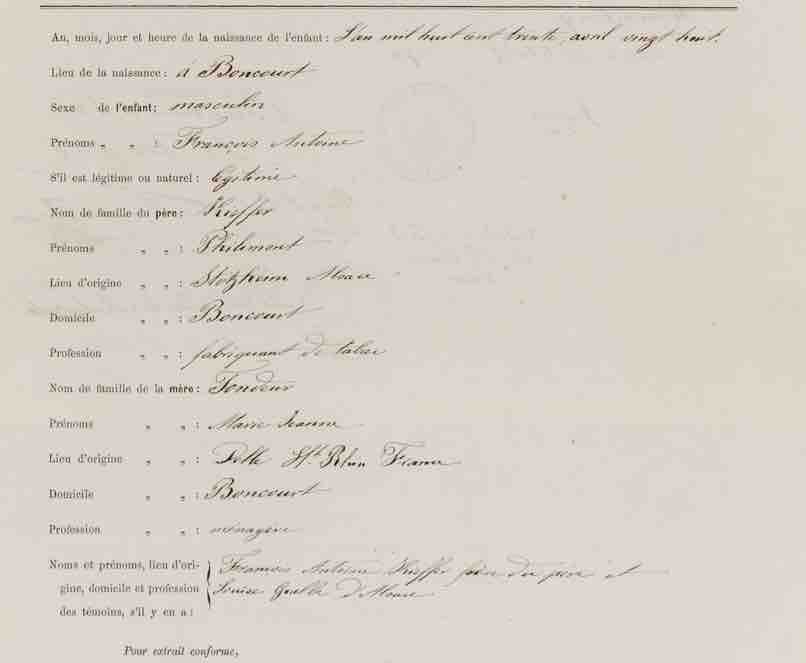 An, mois, jour et heure de la naissance de l'enfant: L'an mil huit cent trente, avril vingt huit.
Lieu de la naissance: à Boncourt
Sexe de l'enfant: masculin
Prénoms „ „ : François Antoine
S'il est légitime ou naturel: légitime
Nom de famille du père: Kieffer
Prénoms „ „ : Philimont
Lieu d'origine „ „ : Stotzheim Alsace
Domicile „ „ : Boncourt
Profession „ „ : fabriquant de tabac
Nom de famille de la mère: Fondeur
Prénoms „ „ : Marie Jeanne
Lieu d'origine „ „ : Delle Ht. Rhin France
Domicile „ „ : Boncourt
Profession „ „ : ménagère
Noms et prénoms, lieu d'ori- François Antoine Kieffer frère du père et
gine, domicile et profession Louise d'Alsace
des témoins, s'il y en a:
Pour extrait conforme,